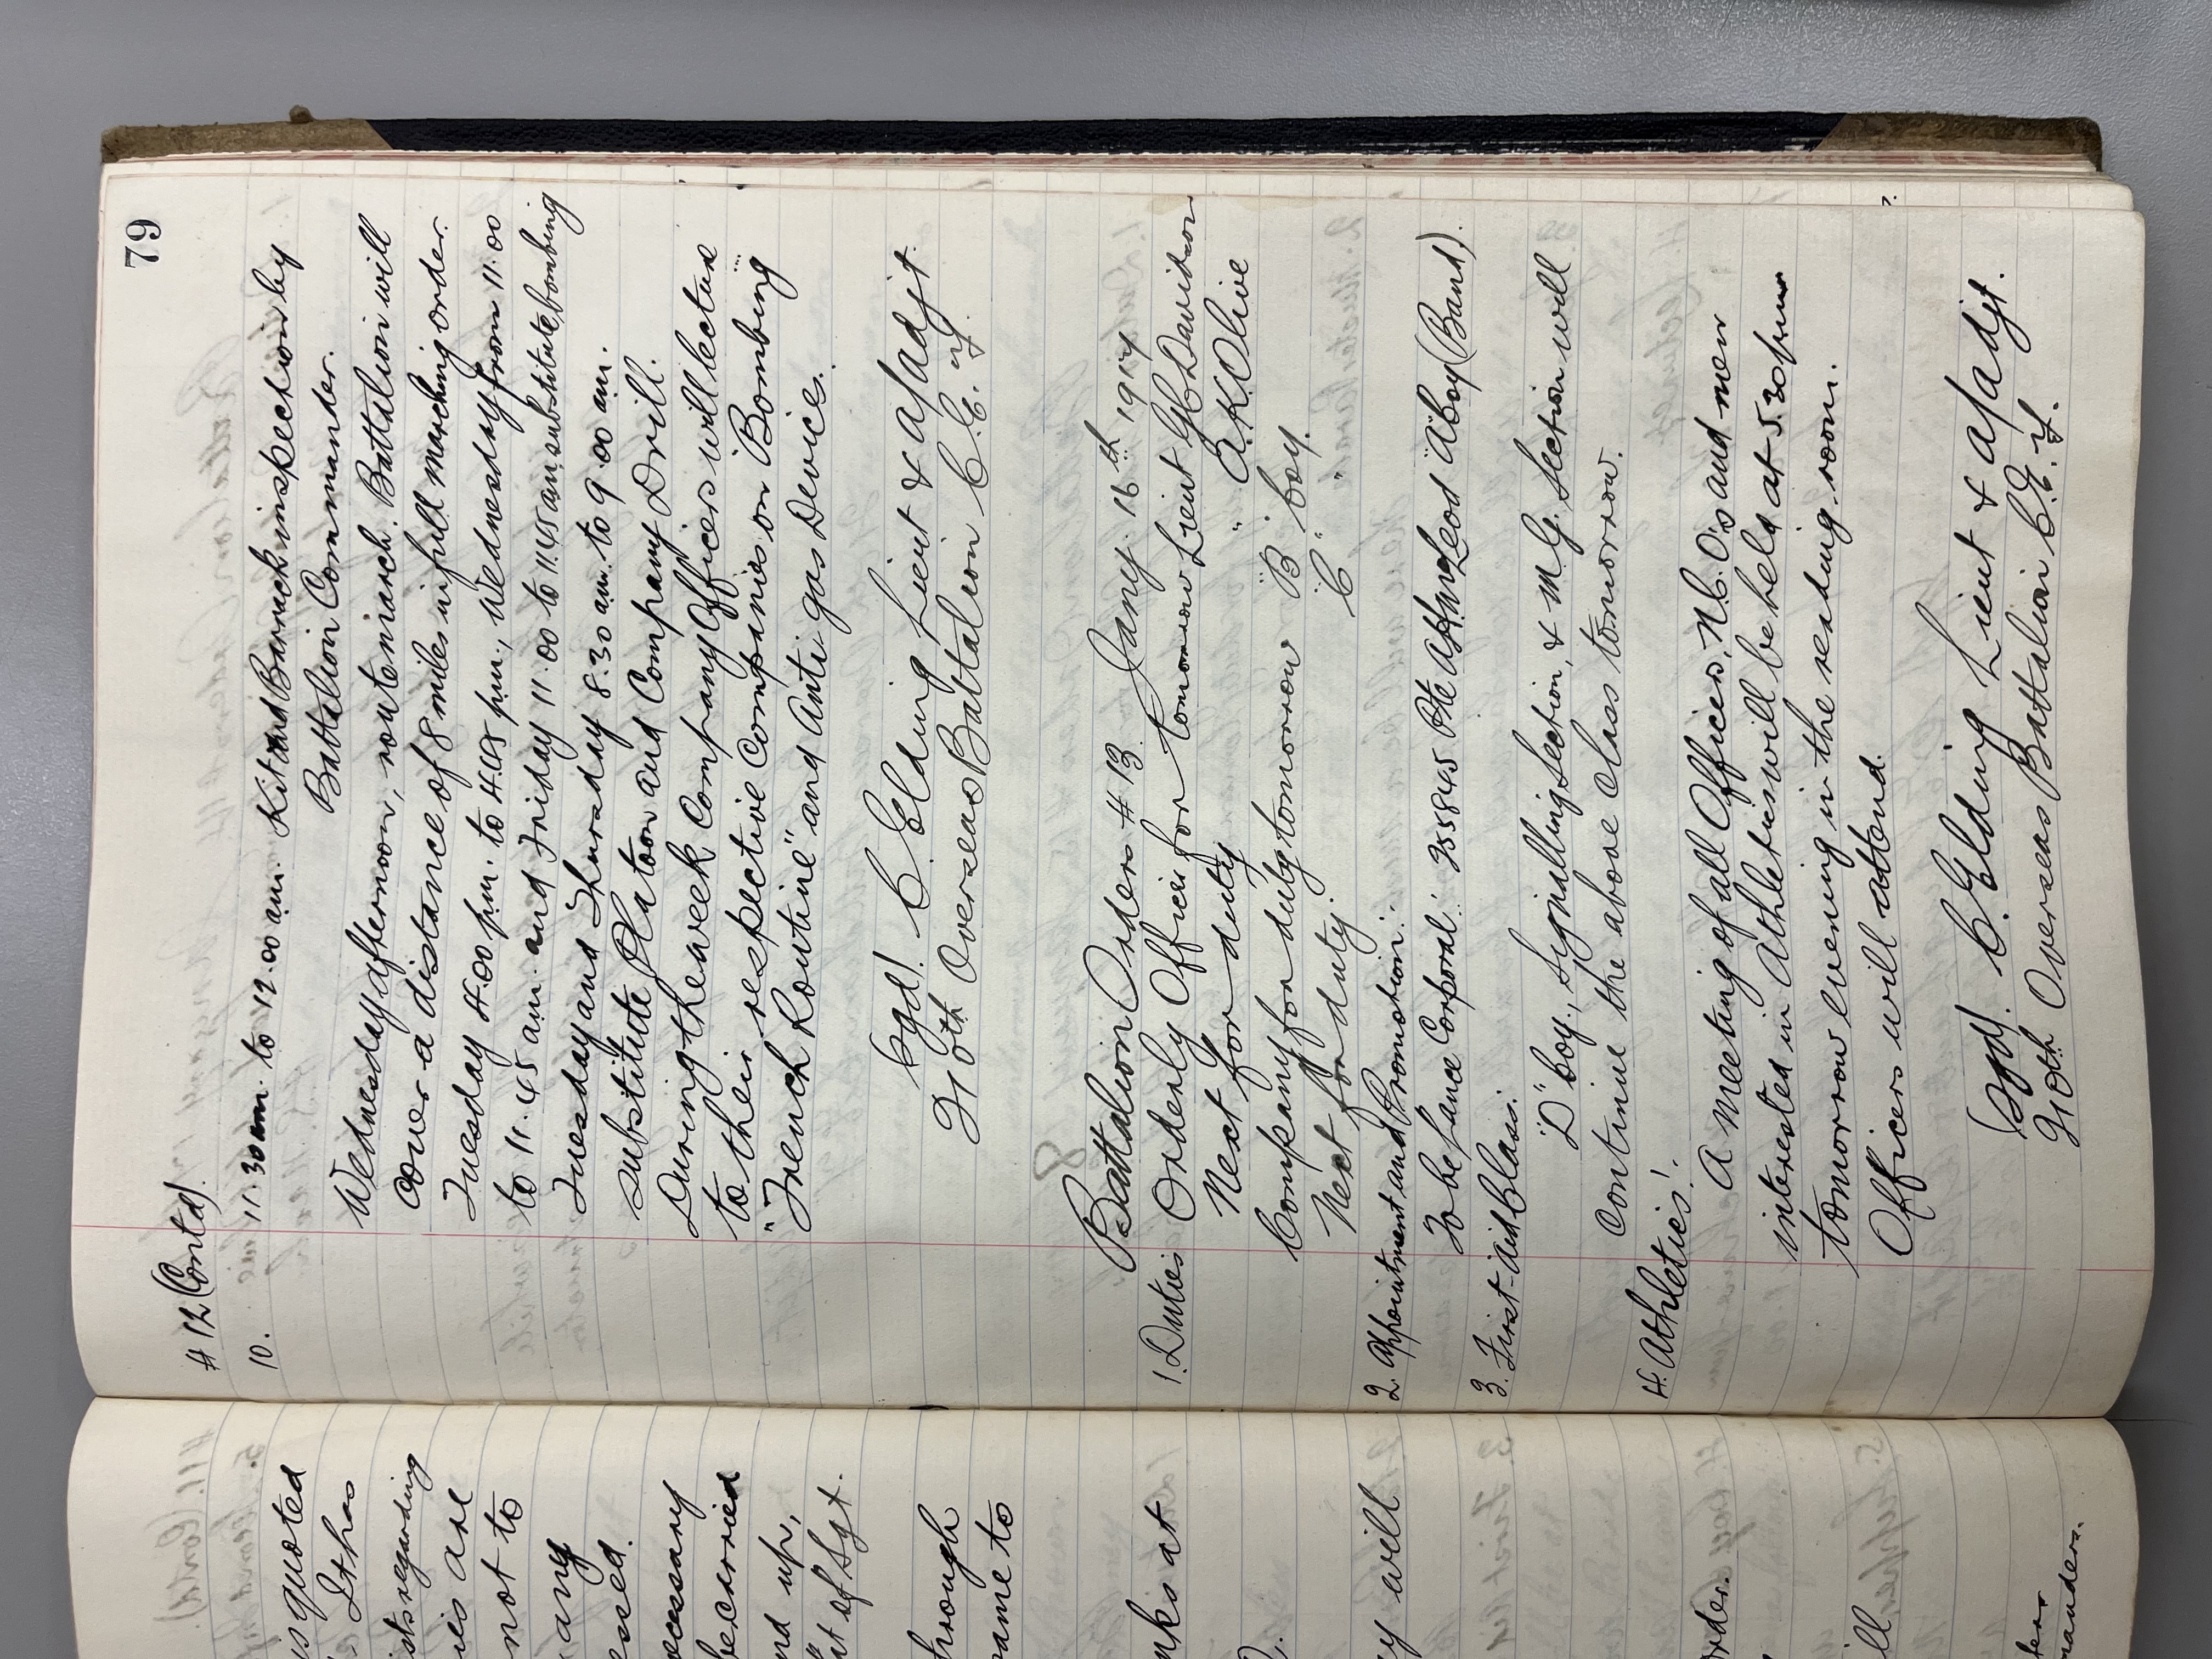 79
# 12 (Contd).
10. 11.30 am. to 12.00 am. Kit and Barrack inspection by
Battalion Commander.
Wednesday afternoon, route march. Battalion will
cover a distance of 8 miles in full marching order.
Tuesday 4.00 p.m. to 4.45 p.m., Wednesday from 11.00
to 11.45 a.m. and Friday 11.00 to 11.45 am substitute bombing
Tuesday and Thursday 8.30 a.m. to 9.00 a.m.
substitute Platoon and Company Drill.
During the week Company Officers will lecture
to their respective Companies on Bombing
"Trench Routine" and Anti gas Devices.
Sgd). C. Elding Lieut & a/adjt.
210th Overseas Battalion C.E.F.
Battalion Orders # 13. Jany. 16th 1917
1. Duties Orderly Officer for tomorrow Lieut G.C. Davidson
Next for duty " A.K. Olive
Company for duty tomorrow "B" Coy.
Next for duty. "C" "
2. Appointment and Promotion:.
To be Lance Corporal:. Pte McLeod "A" Coy (Band).
3. First-Aid Class:.
"D" Coy., Signalling Section, & M.G. Section will
continue the above class tomorrow.
4. Athletics:.
A meeting of all Officers, N.C.O's and men
interested in Athletics will be held at 5.30 p.m
tomorrow evening in the reading-room.
Officers will attend.
(Sgd). C. Elding Lieut & a/adjt.
210th Overseas Battalion C.E.F.
quoted
It has
regarding
are
not to
any
up,
of Sgt.
to
at
will